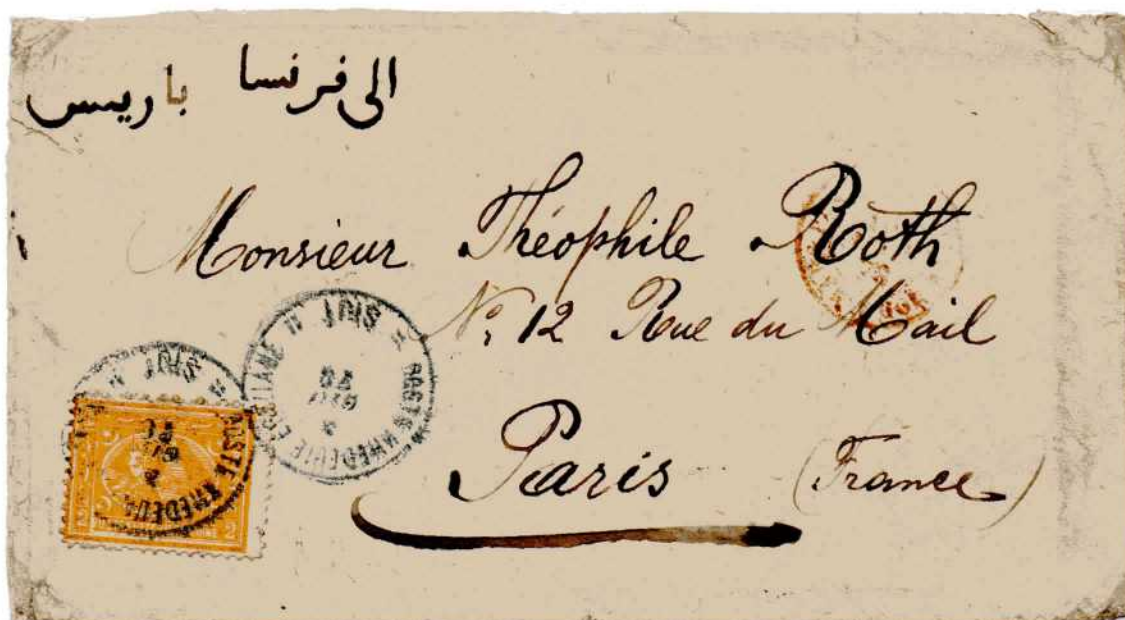 الى فرنسا باريس
Monsieur Théophile Roth
No. 12 Rue du Mail
Paris (France)
POSTE KHEDEUIE EGIZIANE
POSTE KHEDEUIE